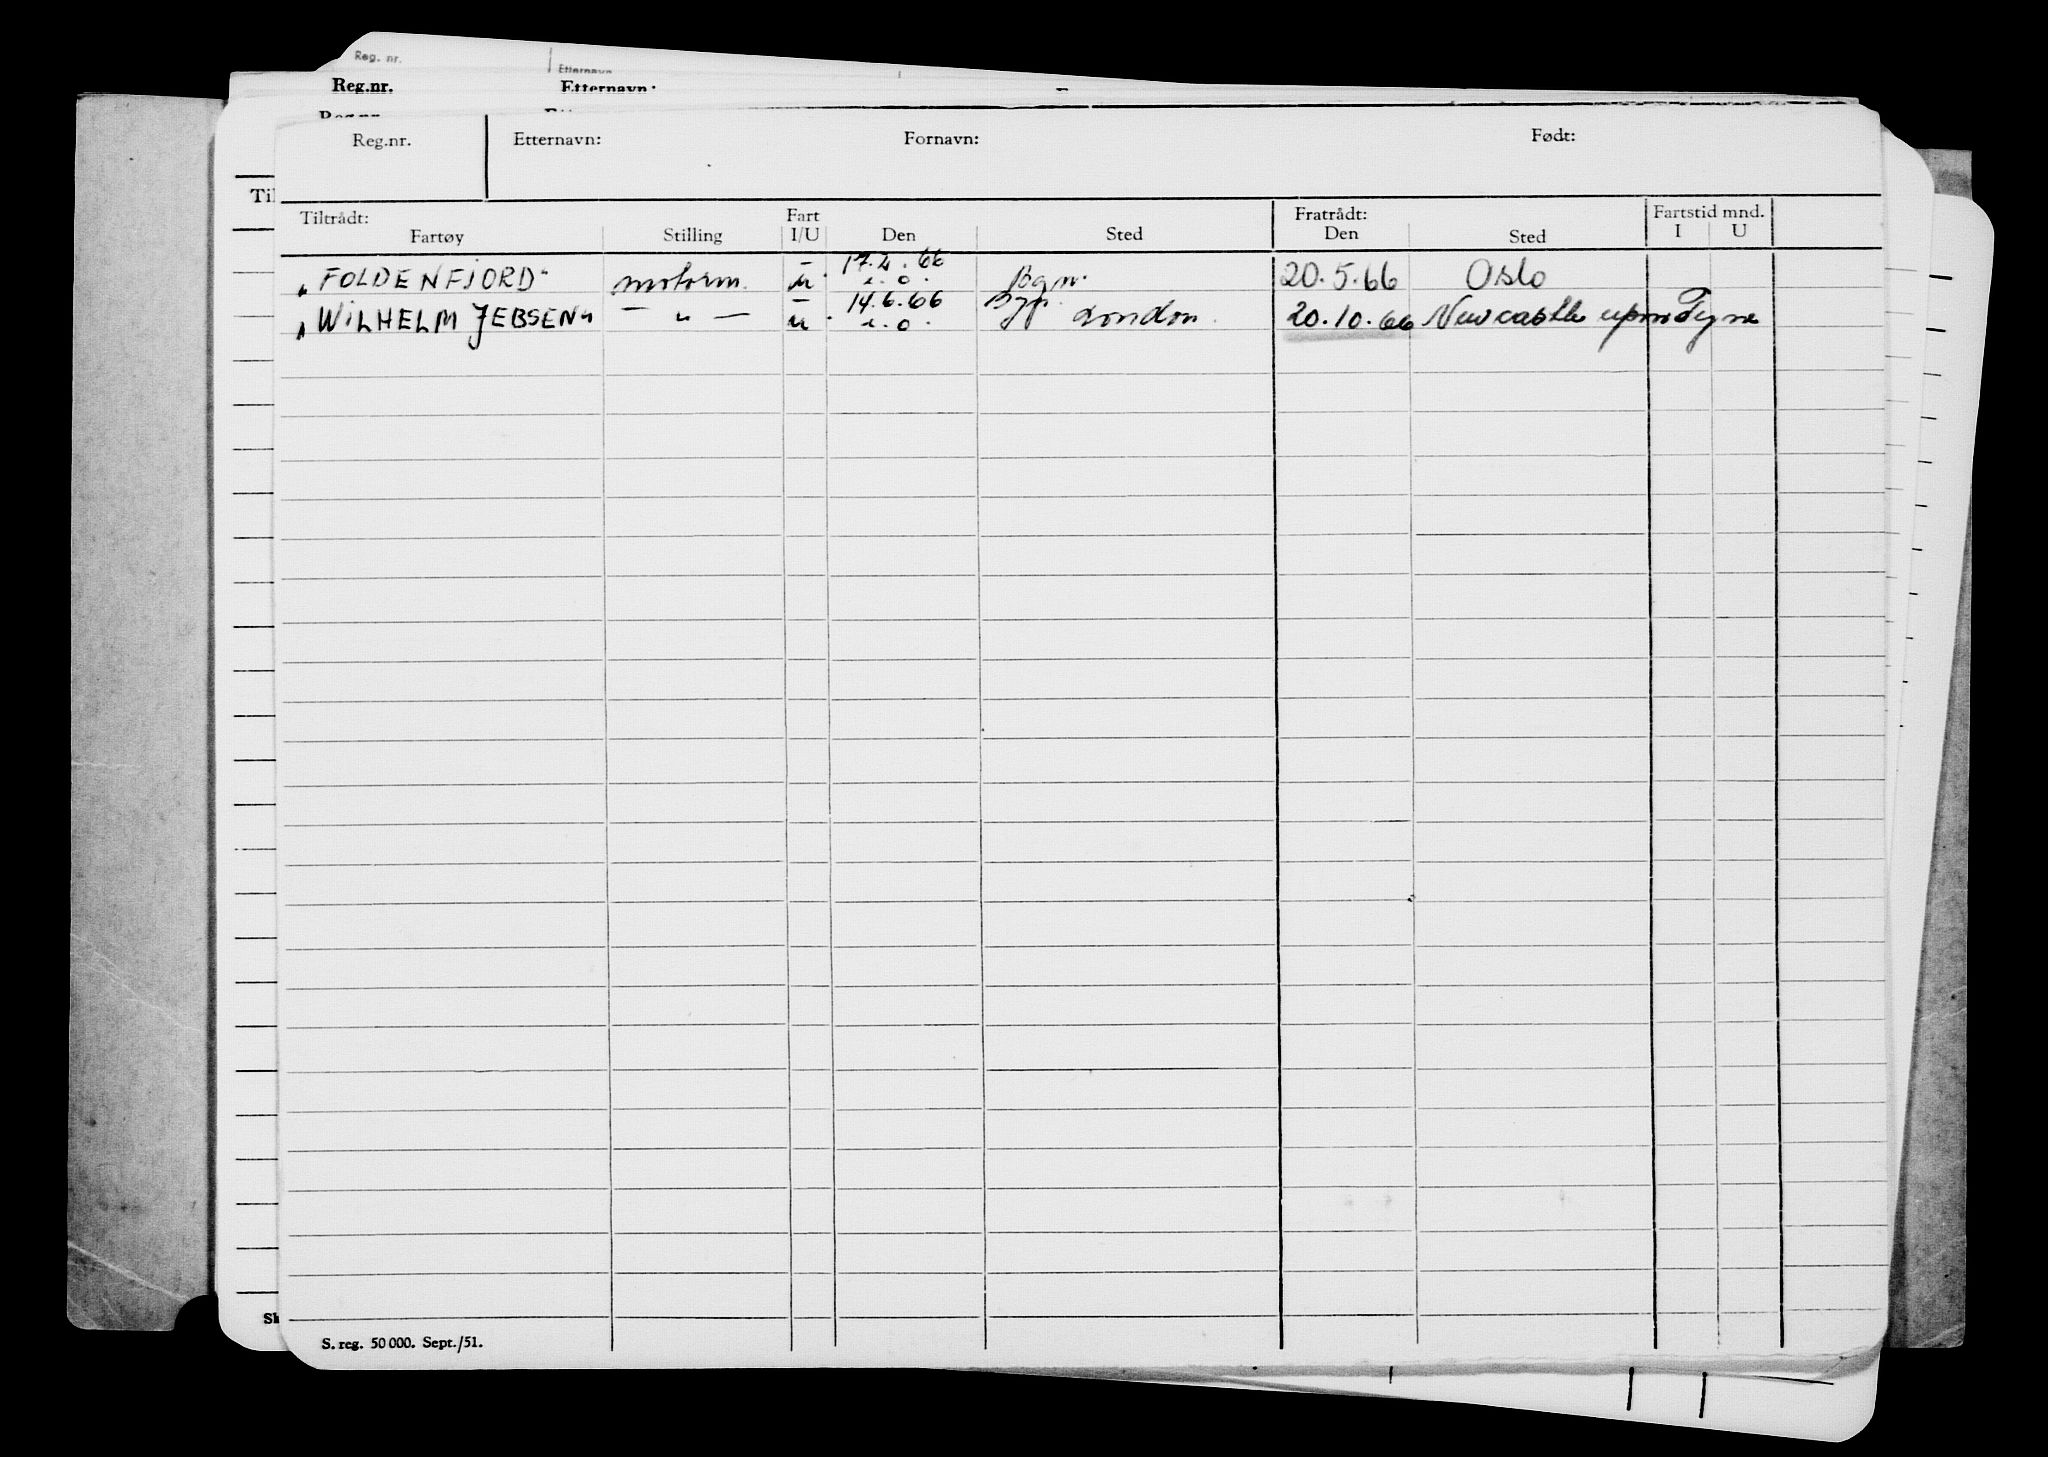 Reg. nr. Etternavn
Reg.nr. Etternavn:
Reg.nr.
Reg.nr. Etternavn: Fornavn: Født:
Til
Tiltrådt: Fart Fratrådt: Fartstid mnd.
Fartøy Stilling I/U Den Sted Den Sted I U
17.2.66
"FOLDENFJORD" motorm. u. i.o. Bgn. 20.5.66 Oslo
14.6.66
"WILHELM JEBSEN" — " — u. i.o. London. 20.10.66 Newcastle upon Tyne
S. reg. 50 000. Sept./51.